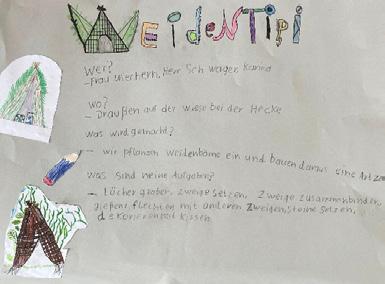 WEidENTiPi
Wer?
-Frau Schwaiger, Karina
wo?
- Draußen auf der Wiese bei der Hecke
was wird gemacht?
- wir pflanzen weidenbäme ein und bauen daraus eine Art
was sind meine Aufgaben?
- Löcher graben, zweige setzen, Zweige zusammenbinden,
gießen, flechten mit anderen Zweigen, steine setzen,
dekorieren mit kissen